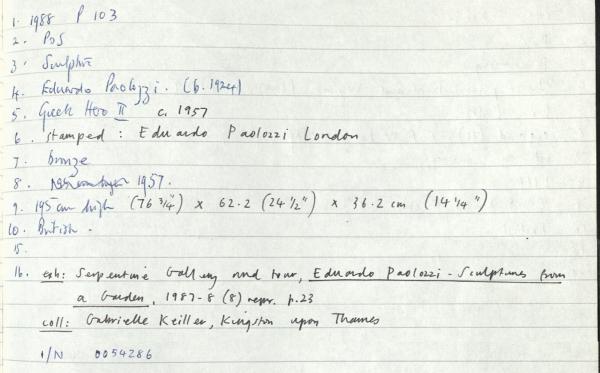 1. 1988 P 103
2. POS
3. Sculpture
4. Eduardo Paolozzi. (b. 1924)
5. Greek Hero II c. 1957
6. stamped : Eduardo Paolozzi London
7. bronze
8. 1957.
9. 195 cm high (76 3/4") x 62.2 (24 1/2") x 36.2 cm (14 1/4")
10. British.
15.
16. exh: Serpentine Gallery and tour, Eduardo Paolozzi - Sculptures from
a Garden, 1987-8 (8) repr. p.23
coll: Gabrielle Keiller, Kingston upon Thames
I/N 0054286